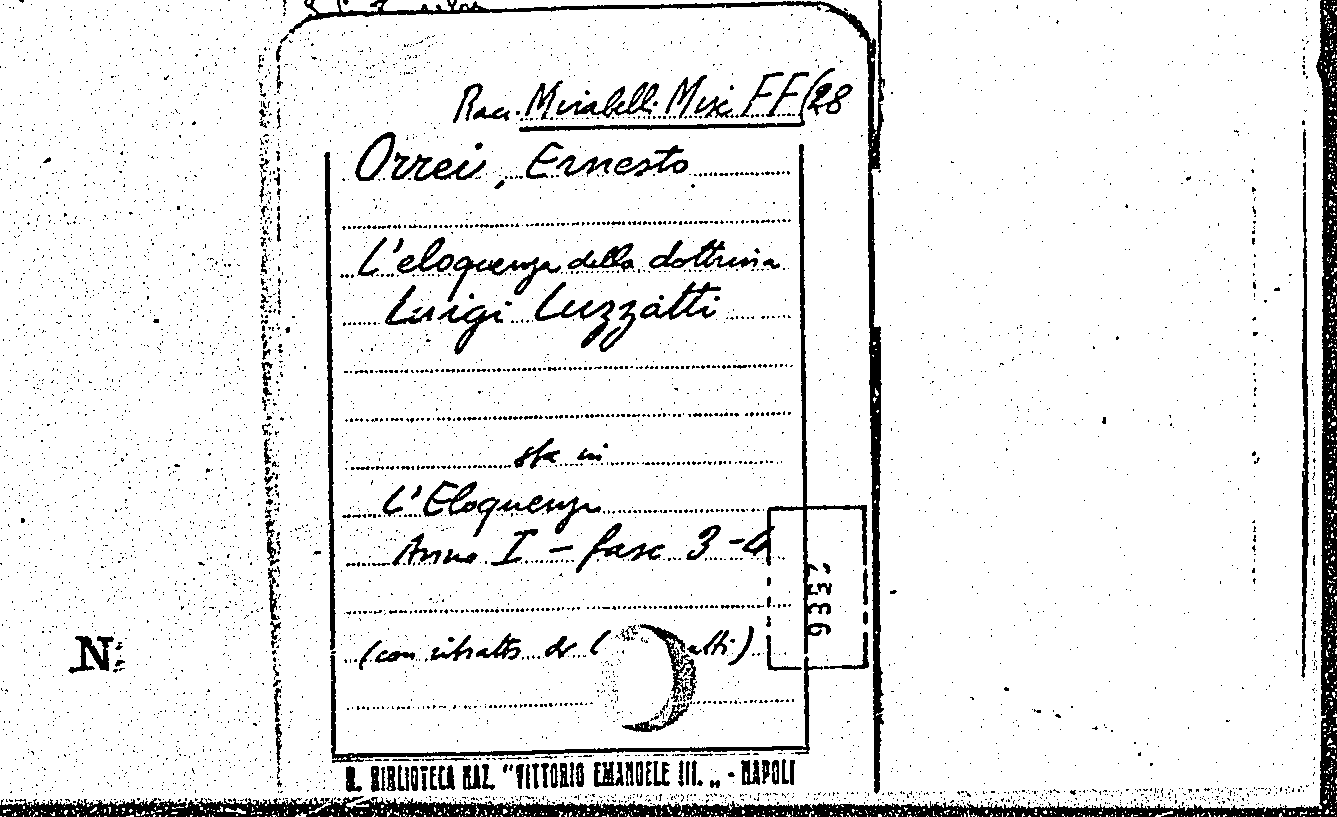 Racc. Mirabelli Misc FF(28
Orrei, Ernesto
L'eloquenza della dottrina
Luigi Luzzatti
sta in
L'Eloquenza
Anno I - fasc 3-4
(con ritratto di L atti)
9357
N
R. BIBLIOTECA NAZ. "VITTORIO EMANUELE III. „ - NAPOLI